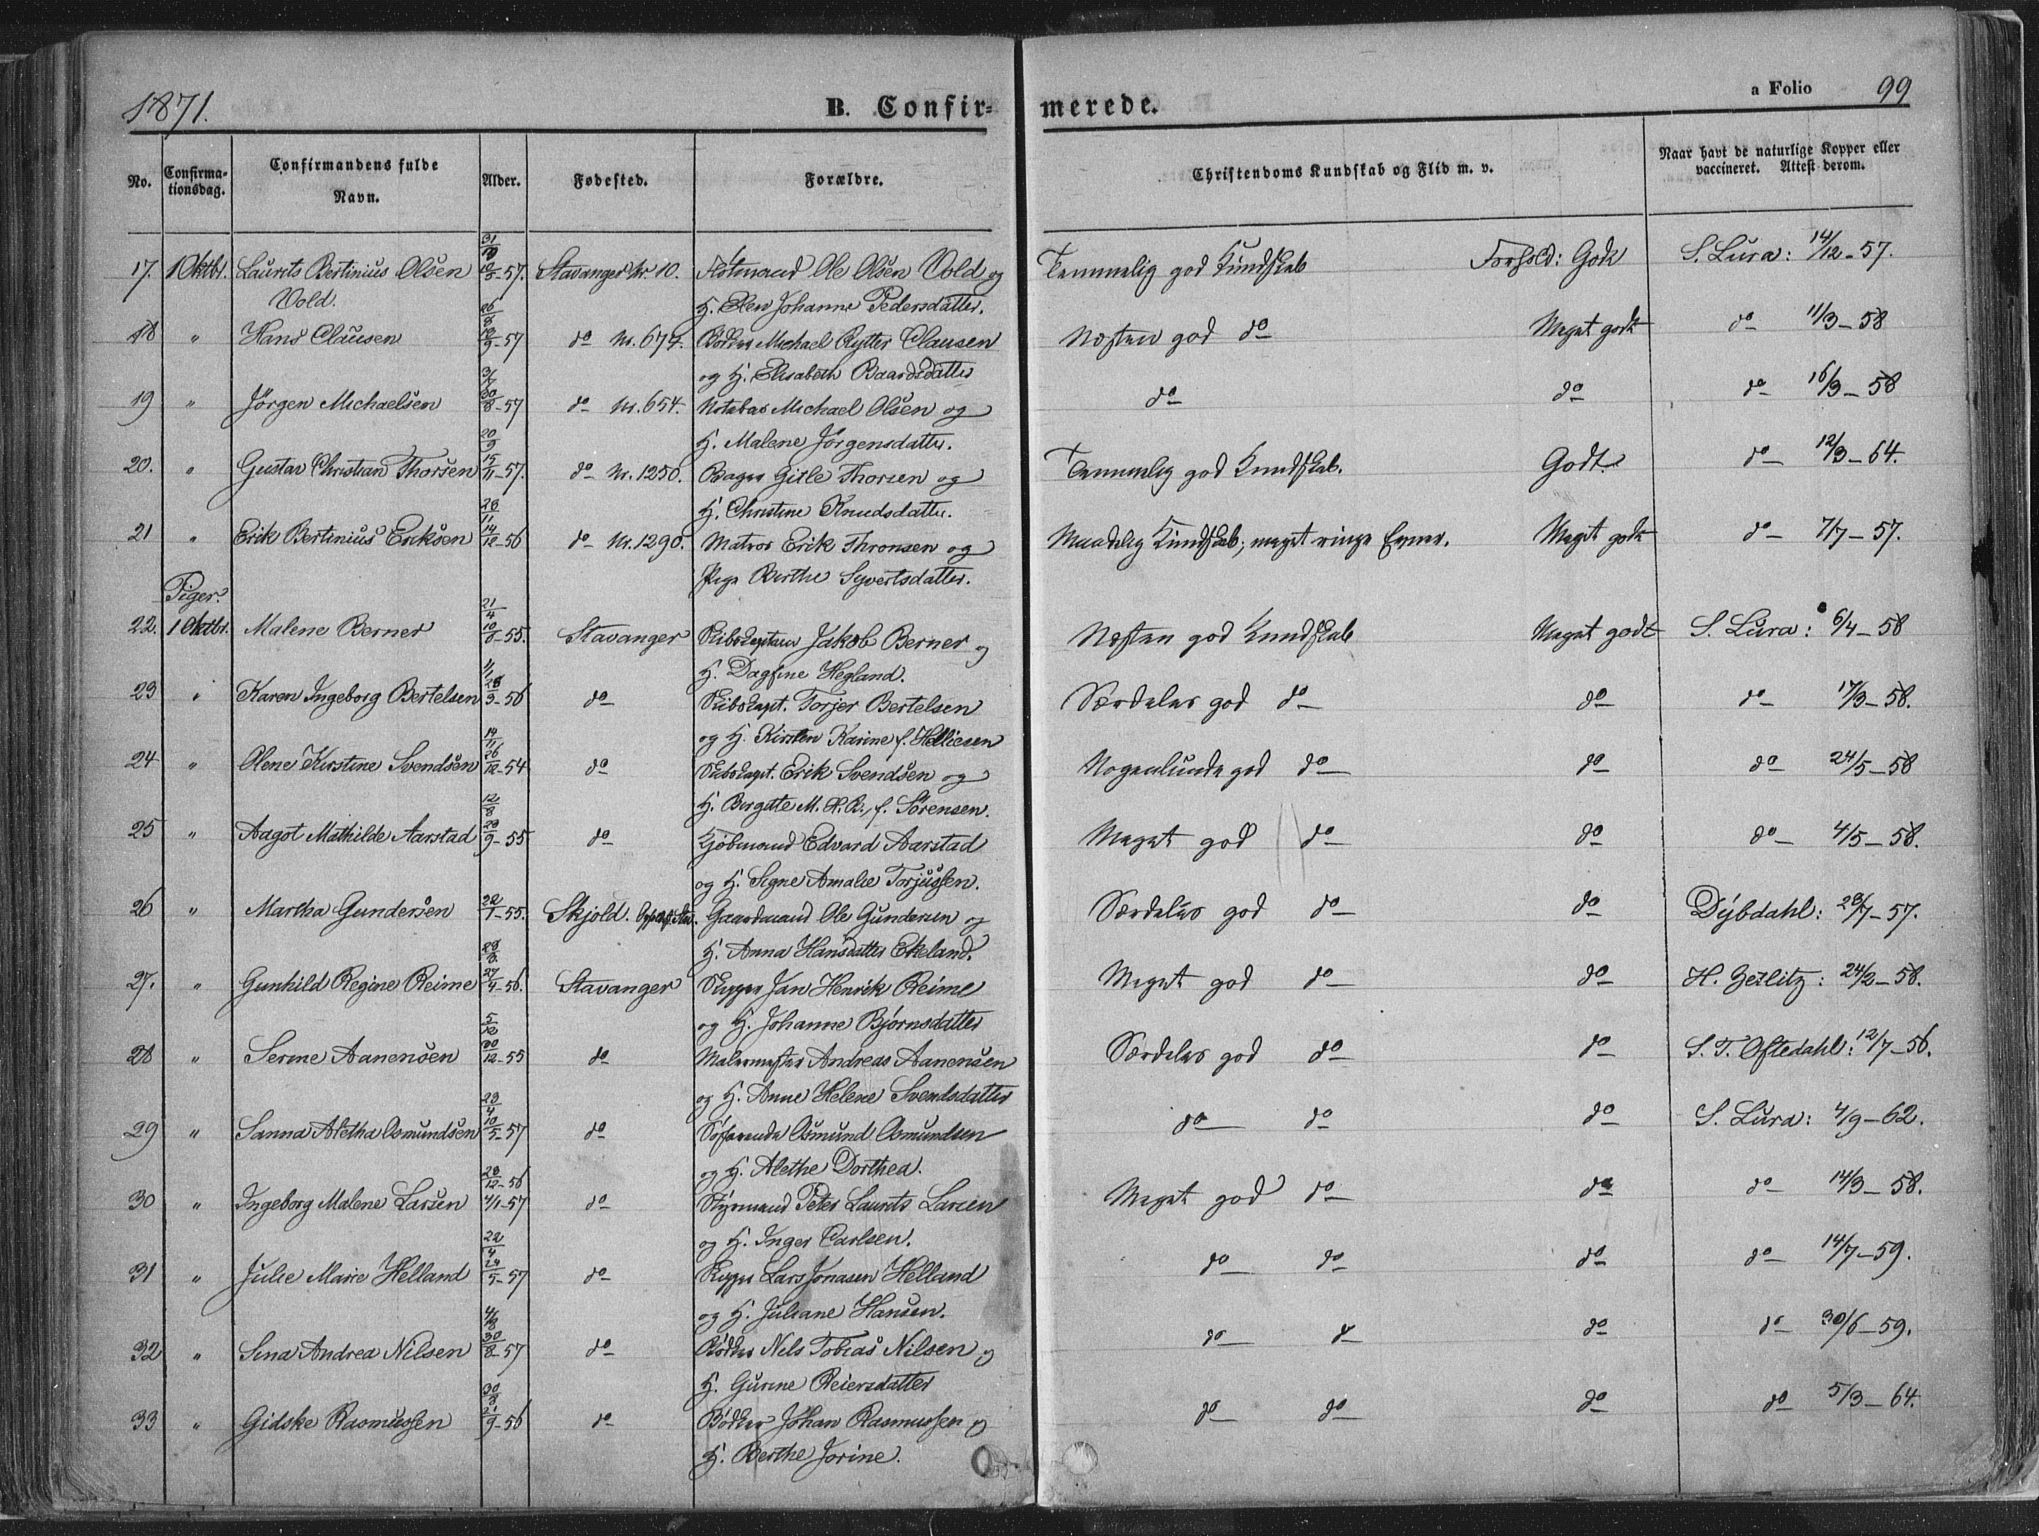 1871.
B. Confirmerede.
a Folio 99
No. Confirmationsdag. Confirmandens fulde Navn. Alder. Fødested. Forældre. Christendoms Kundskab og Flid m. v. Naar havt de naturlige Kopper eller vaccineret. Attest derom.
17. 1 Oktbr. Laurits Bertinius Olsen -57. Stavanger Nr. 10. Ole Olsen Vold og Temmelig god Kundskab Forhold: Godt S. Lura: 14/12-57.
Vold. H. Elen Johanne Pedersdatter.
18 " Hans Clausen -57 do Nr. 677. Bødker Michael Rytter Clausen Næsten god do Meget godt do 11/3-58
og H. Elisabeth Baardsdatter
19 " Jörgen Michaelsen 30/8-57 do Nr. 654. Michael Olsen og do do do 16/3-58
H. Malene Jörgensdatter.
20/9
20. " Gustav Christian Thorsen 15/11-57. do Nr. 1250. Bager Gitle Thorsen og Temmelig god Kundskab. Godt do 12/3-64.
H. Christine Knudsdatter.
21 " Erik Bertinius Eriksen 14/12-56 do Nr. 1290. Matros Erik Thronsen og Maadelig Kundskab; meget ringe Evner. Meget godt do 7/7-57.
Pige Berthe Syvertsdatter.
Piger.
21/4
22. 1 Oktbr. Malene Berner -55. Stavanger Skibscaptain Jakob Berner og Næsten god Kundskab Meget godt S. Lura: 6/4-58
H. Dagfine Hegland.
23 " Karen Ingeborg Bertelsen 28/3-56 do Skibscapt. Torjer Bertelsen Særdeles god do do do 17/3-58.
og H. Kirsten Karine f. Helliesen
14/11
24 " Olene Kirstine Svendsen 26/12-54 do Skibscapt. Erik Svendsen og Nogenlunde god do do do 24/5-58
H. Birgate M. H. B., f. Sörensen.
12/8
25 " Aagot Mathilde Aarstad 29/9-55 do Kjöbmand Edvard Aarstad Meget god do do do 4/5-58.
og H. Signe Amalie Torjussen.
26 " Martha Gundersen 22/1-55. Skjold. Gaardmand Ole Gundersen og Særdeles god do do Dybdahl: 28/7-57.
H. Anna Hansdatter Ekeland.
27. " Gunhild Regine Reime 27/4-56. Stavanger Skipper Jan Henrik Reime Meget god do do H. Zetlitz: 24/2-58.
og H. Johanne Bjørnsdatter
28 " Serine Aanensen 30/12-55 do Malermester Andreas Aanensen Særdeles god do do S. T. Oftedahl: 12/7-56.
og H. Anne Helene Svendsdatter
29/4
29 " Sanna Aletha Osmundsen 10/5-57 do Söfarende Osmund Osmundsen do do do S. Lura: 4/9-62.
og H. Alethe Dorthea.
28/12-56
30 " Ingeborg Malene Larsen 4/1-57 do Styrmand Peter Laurits Larsen Meget god do do do 14/3-58.
og H. Inger Carlsen.
22/4
31 " Julie Marie Helland 24/5-57 do Skipper Lars Jonasen Helland do do do do 14/7-59.
og H. Juliane Hansen.
4/8
32 " Sina Andrea Nilsen 30/8-57 do Bödker Nels Tobias Nilsen og do do do do 30/6-59.
H. Gurine Reiersdatter
30/8
33 " Gidske Rasmussen 21/9-56 do Bödker Johan Rasmussen og do do do do 5/3-64.
H. Berthe Jorine.